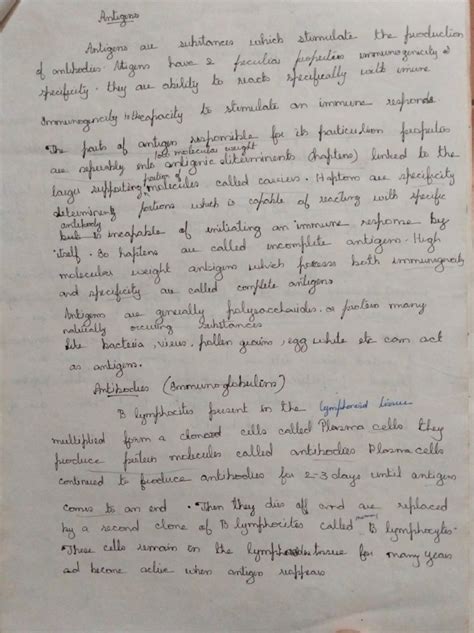 Antigens
Antigens are substances which stimulate the production
of antibodies. Atigens have 2 peculiar properties immunogenicity &
specificity. they are ability to reacts specifically with imune
Immunogencity is the capacity to stimulate an immune response
The parts of antigen responsible for its particulism propertes
are seperably into low molecular weight antigenic determinents (haptens) linked to the
larger supporting portion of molecules called carriers. Haptons are specificity
determinenty portions which is capable of reacting with specific
antibody but is incapable of initiating an immune response by
itself. So haptens are called incomplete antigens. High
molecular weight antigens which possess both immunogenicity
and specificity are called complete antigens
Antigens are generally polysaccharides, or protein many
naturally occuring substances
like bacteria, virus, pollen grains, egg white etc can act
as antigens.
Antibodies (Immunoglobulins)
B lymphocites present in the lymphoreid tissue
multiplied form a cloned cells called Plasma cells they
produce protein molecules called antibodies Plasma cells
continued to produce antibodies for 2-3 days until antigens
comes to an end. Then they dies off and are replaced
by a second clone of B lymphocites called memory B lymphocytes.
These cells remain in the lymphoid tissue for many years
ad become active when antigen reappears